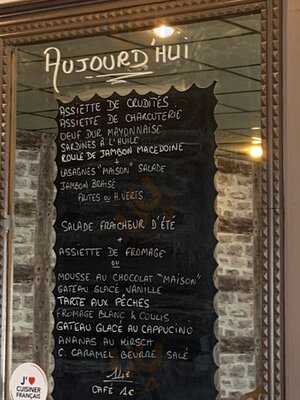 AUJOURD'HUI
ASSIETTE DE CRUDITÉS
ASSIETTE DE CHARCUTERIE
OEUF DUR MAYONNAISE
SARDINES À L'HUILE
ROULÉ DE JAMBON MACEDOINE
+
LASAGNES "MAISON" SALADE
JAMBON BRAISÉ
FRITES OU H. VERTS
SALADE FRAICHEUR D'ÉTÉ
+
ASSIETTE DE FROMAGE
OU
MOUSSE AU CHOCOLAT "MAISON"
GATEAU GLACÉ VANILLE
TARTE AUX PÊCHES
FROMAGE BLANC & COULIS
GATEAU GLACÉ AU CAPPUCINO
ANANAS AU KIRSCH
C. CARAMEL BEURRE SALÉ
14€
CAFÉ 1€
J'♥
CUISINER
FRANÇAIS